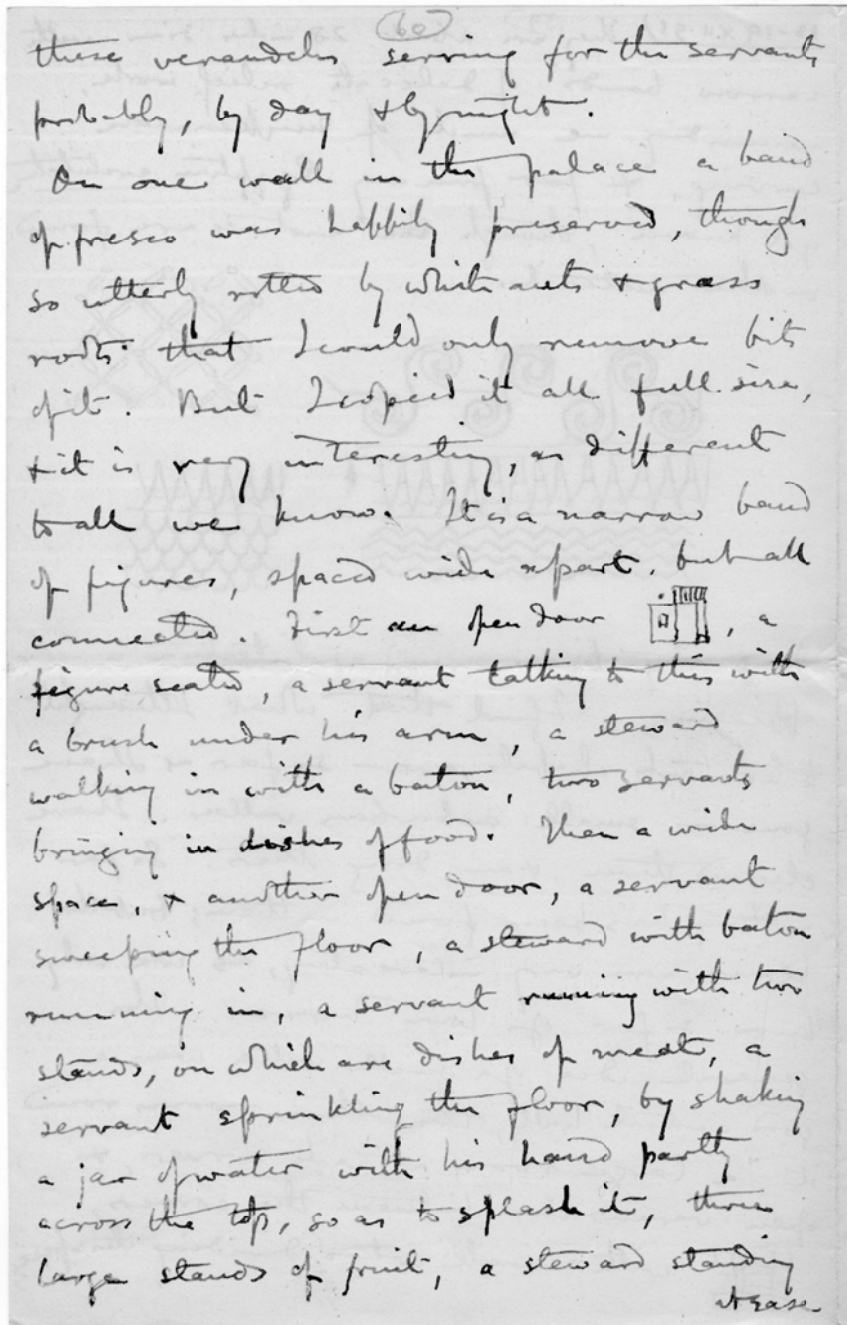 (60)
these verandahs serving for the servants
probably, by day & by night.
On one wall in the palace a band
of fresco was happily preserved, though
so utterly rotted by white ants & grass
roots that I could only remove bits
of it. But I copied it all full size,
& it is very interesting, as different
to all we know. It is a narrow band
of figures, spaced wide apart, but all
connected. First an open door , a
figure seated, a servant talking to this with
a brush under his arm, a steward
walking in with a baton, two servants
bringing in dishes of food. Then a wide
space, & another open door, a servant
sweeping the floor, a steward with baton
running in, a servant running with two
stands, on which are dishes of meat, a
servant sprinkling the floor, by shaking
a jar of water with his hand partly
across the top, so as to splash it, three
large stands of fruit, a steward standing
at ease